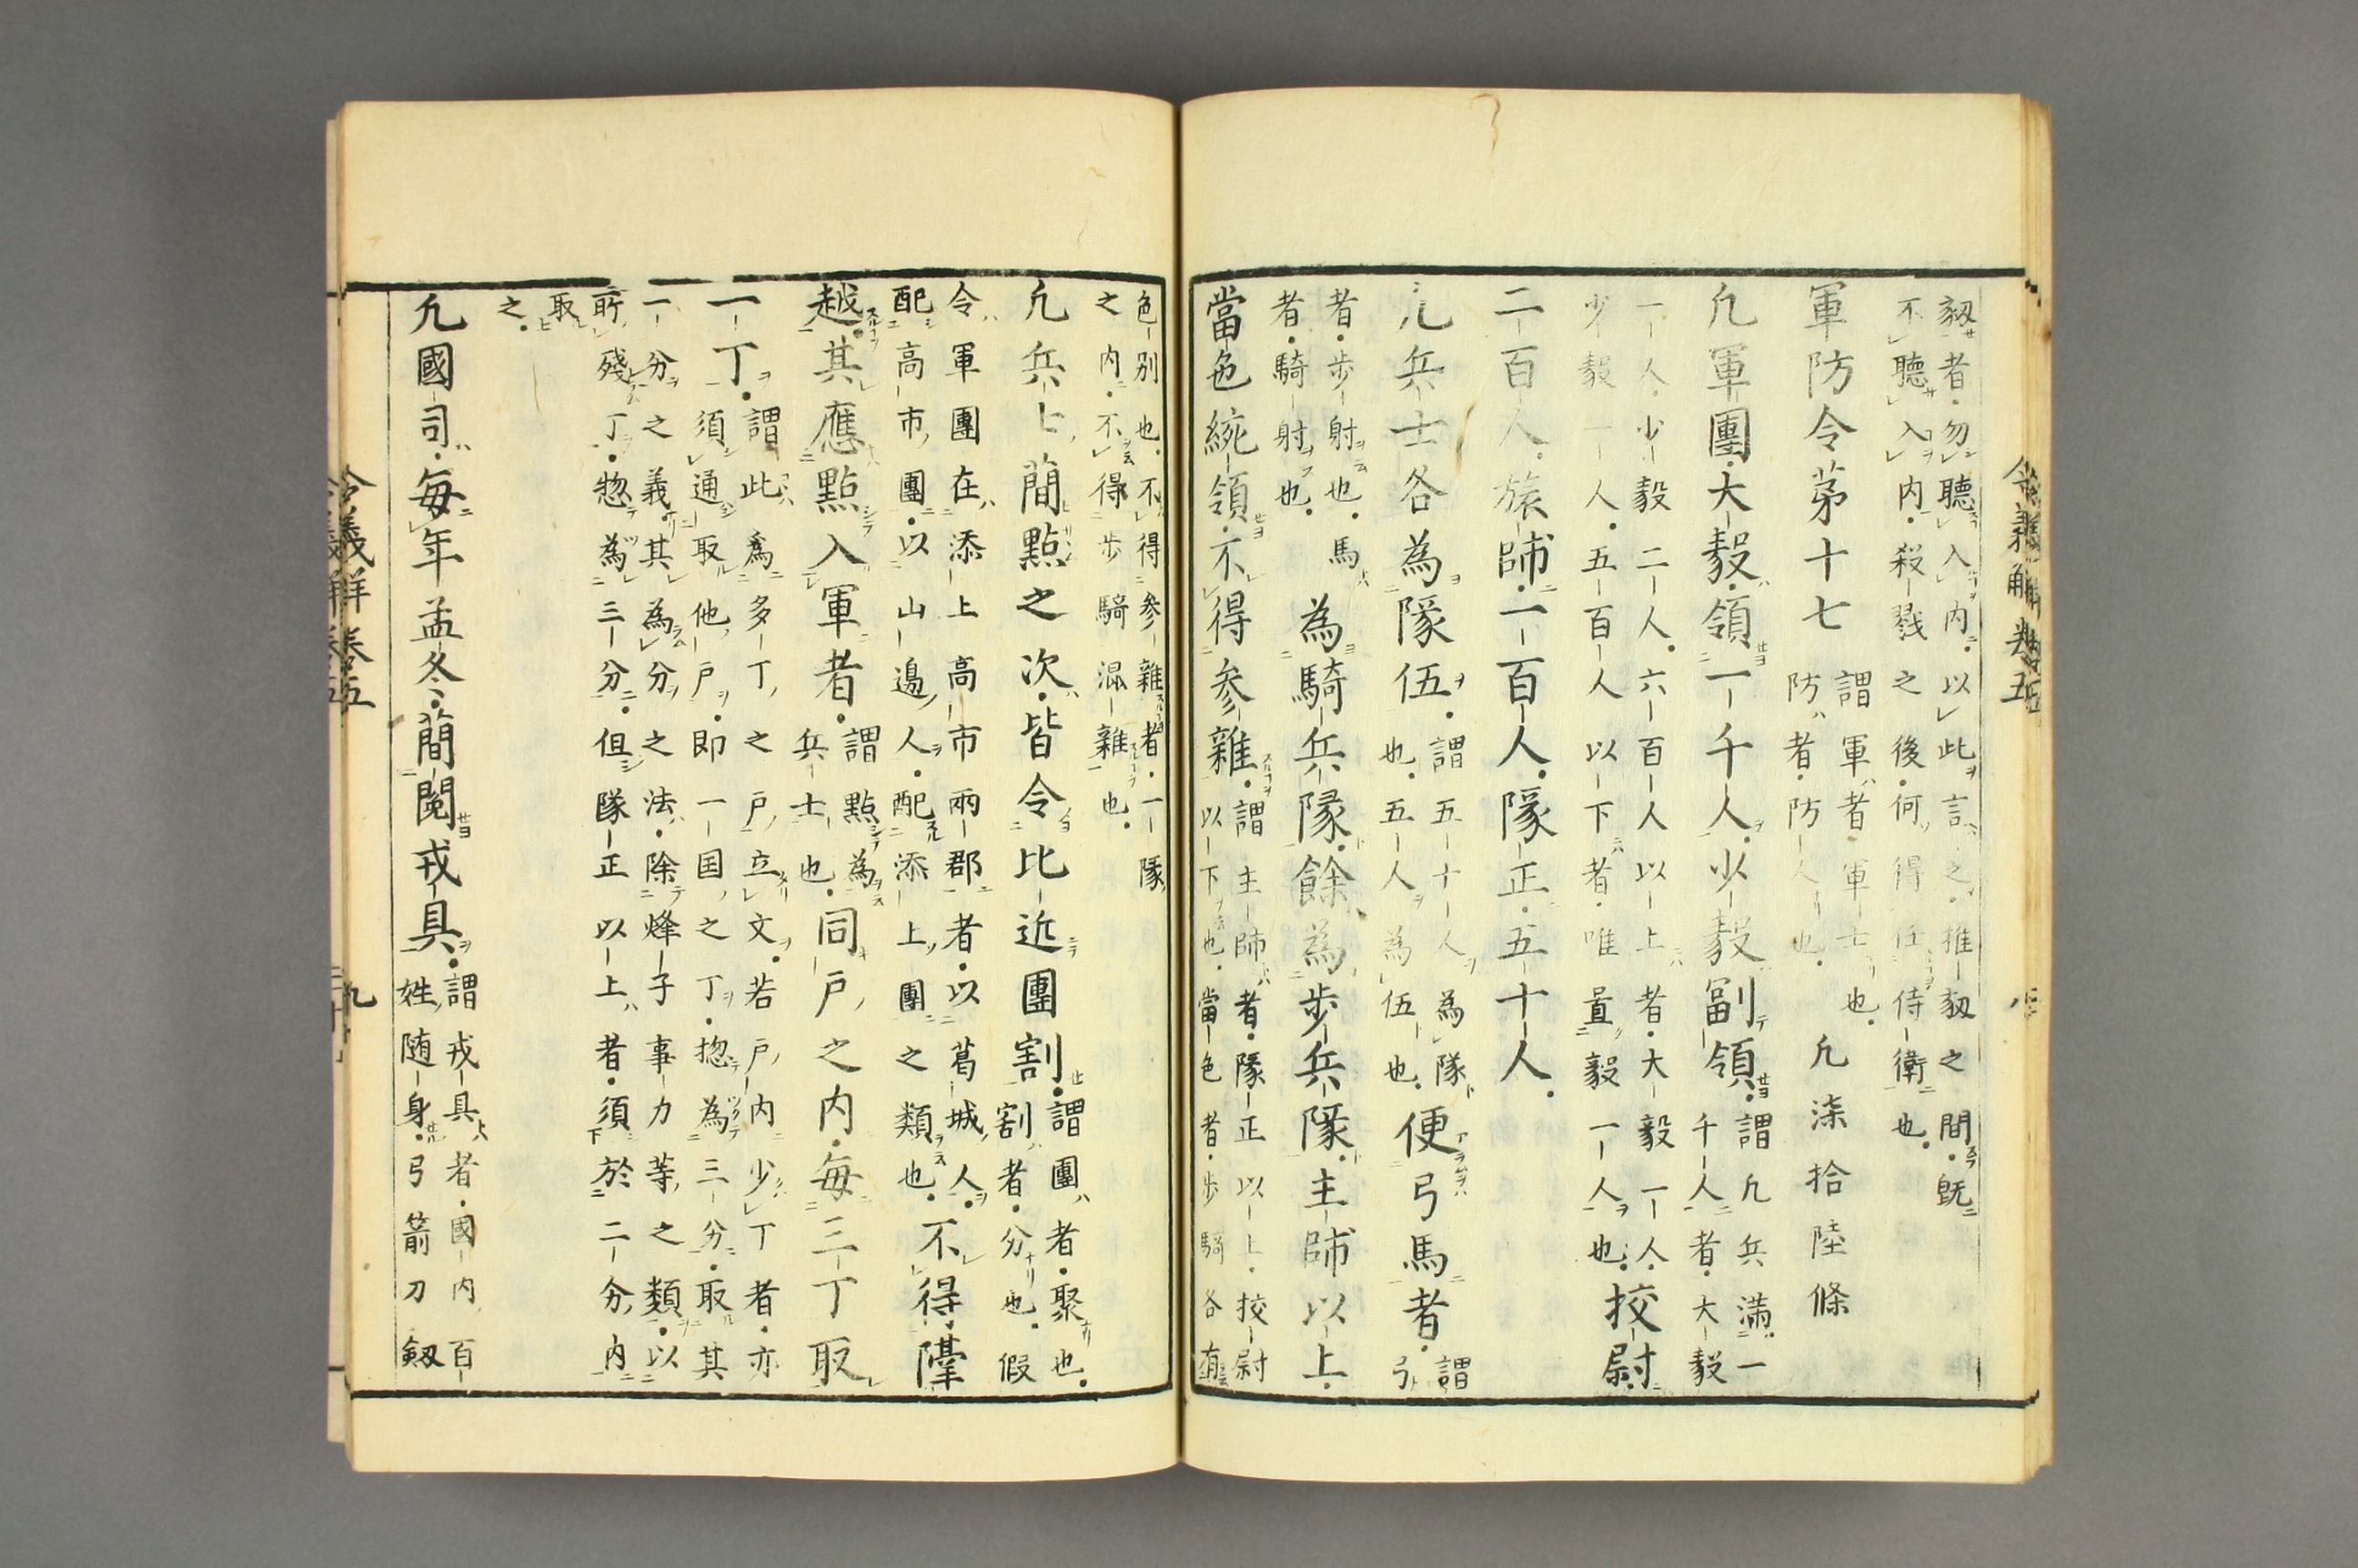 劾者勿聽入内以此言之推劾之間既
不聽入内殺戮之後何得任侍衛也
軍防令苐十七 謂軍者軍士也
防者防人也 凢柒拾陸條
凢軍團大毅領一千人少毅副領 謂凢兵满一
千人者大毅
一人少毅二人六百人以上者大毅一人
少毅一人五百人以下者唯置毅一人也 挍尉
二百人旅帥一百人隊正五十人
凢兵士各為隊伍 謂五十人為隊
也五人為伍也 便弓馬者 謂
弓
者步射也馬
者騎射也 為騎兵隊餘為步兵隊主帥以上
當色統領不得参雜 謂主帥者隊正以上挍尉
以下也當色者步騎各有
色別也不得参雜者一隊
之内不得步騎混雜也
凢兵士簡點之次皆令比近團割 謂團者聚也
割者分也假
令軍團在添上高市兩郡者以葛城人
配高市團以山邊人配添上團之類也 不得隔
越其應點入軍者 謂點為
兵士也 同戶之内每三丁取
一丁 謂此為多丁之戶立文若戶内少丁者亦
須通取他戶即一国之丁惣為三分取其
一分之義其為分之法除烽子事力等之類以
所殘丁惣為三分但隊正以上者須於二分内
取
之
凢國司每年孟冬簡閱戎具 謂戎具者國内百
姓随身弓箭刀劔
令義解卷五 八
令義解卷五 九